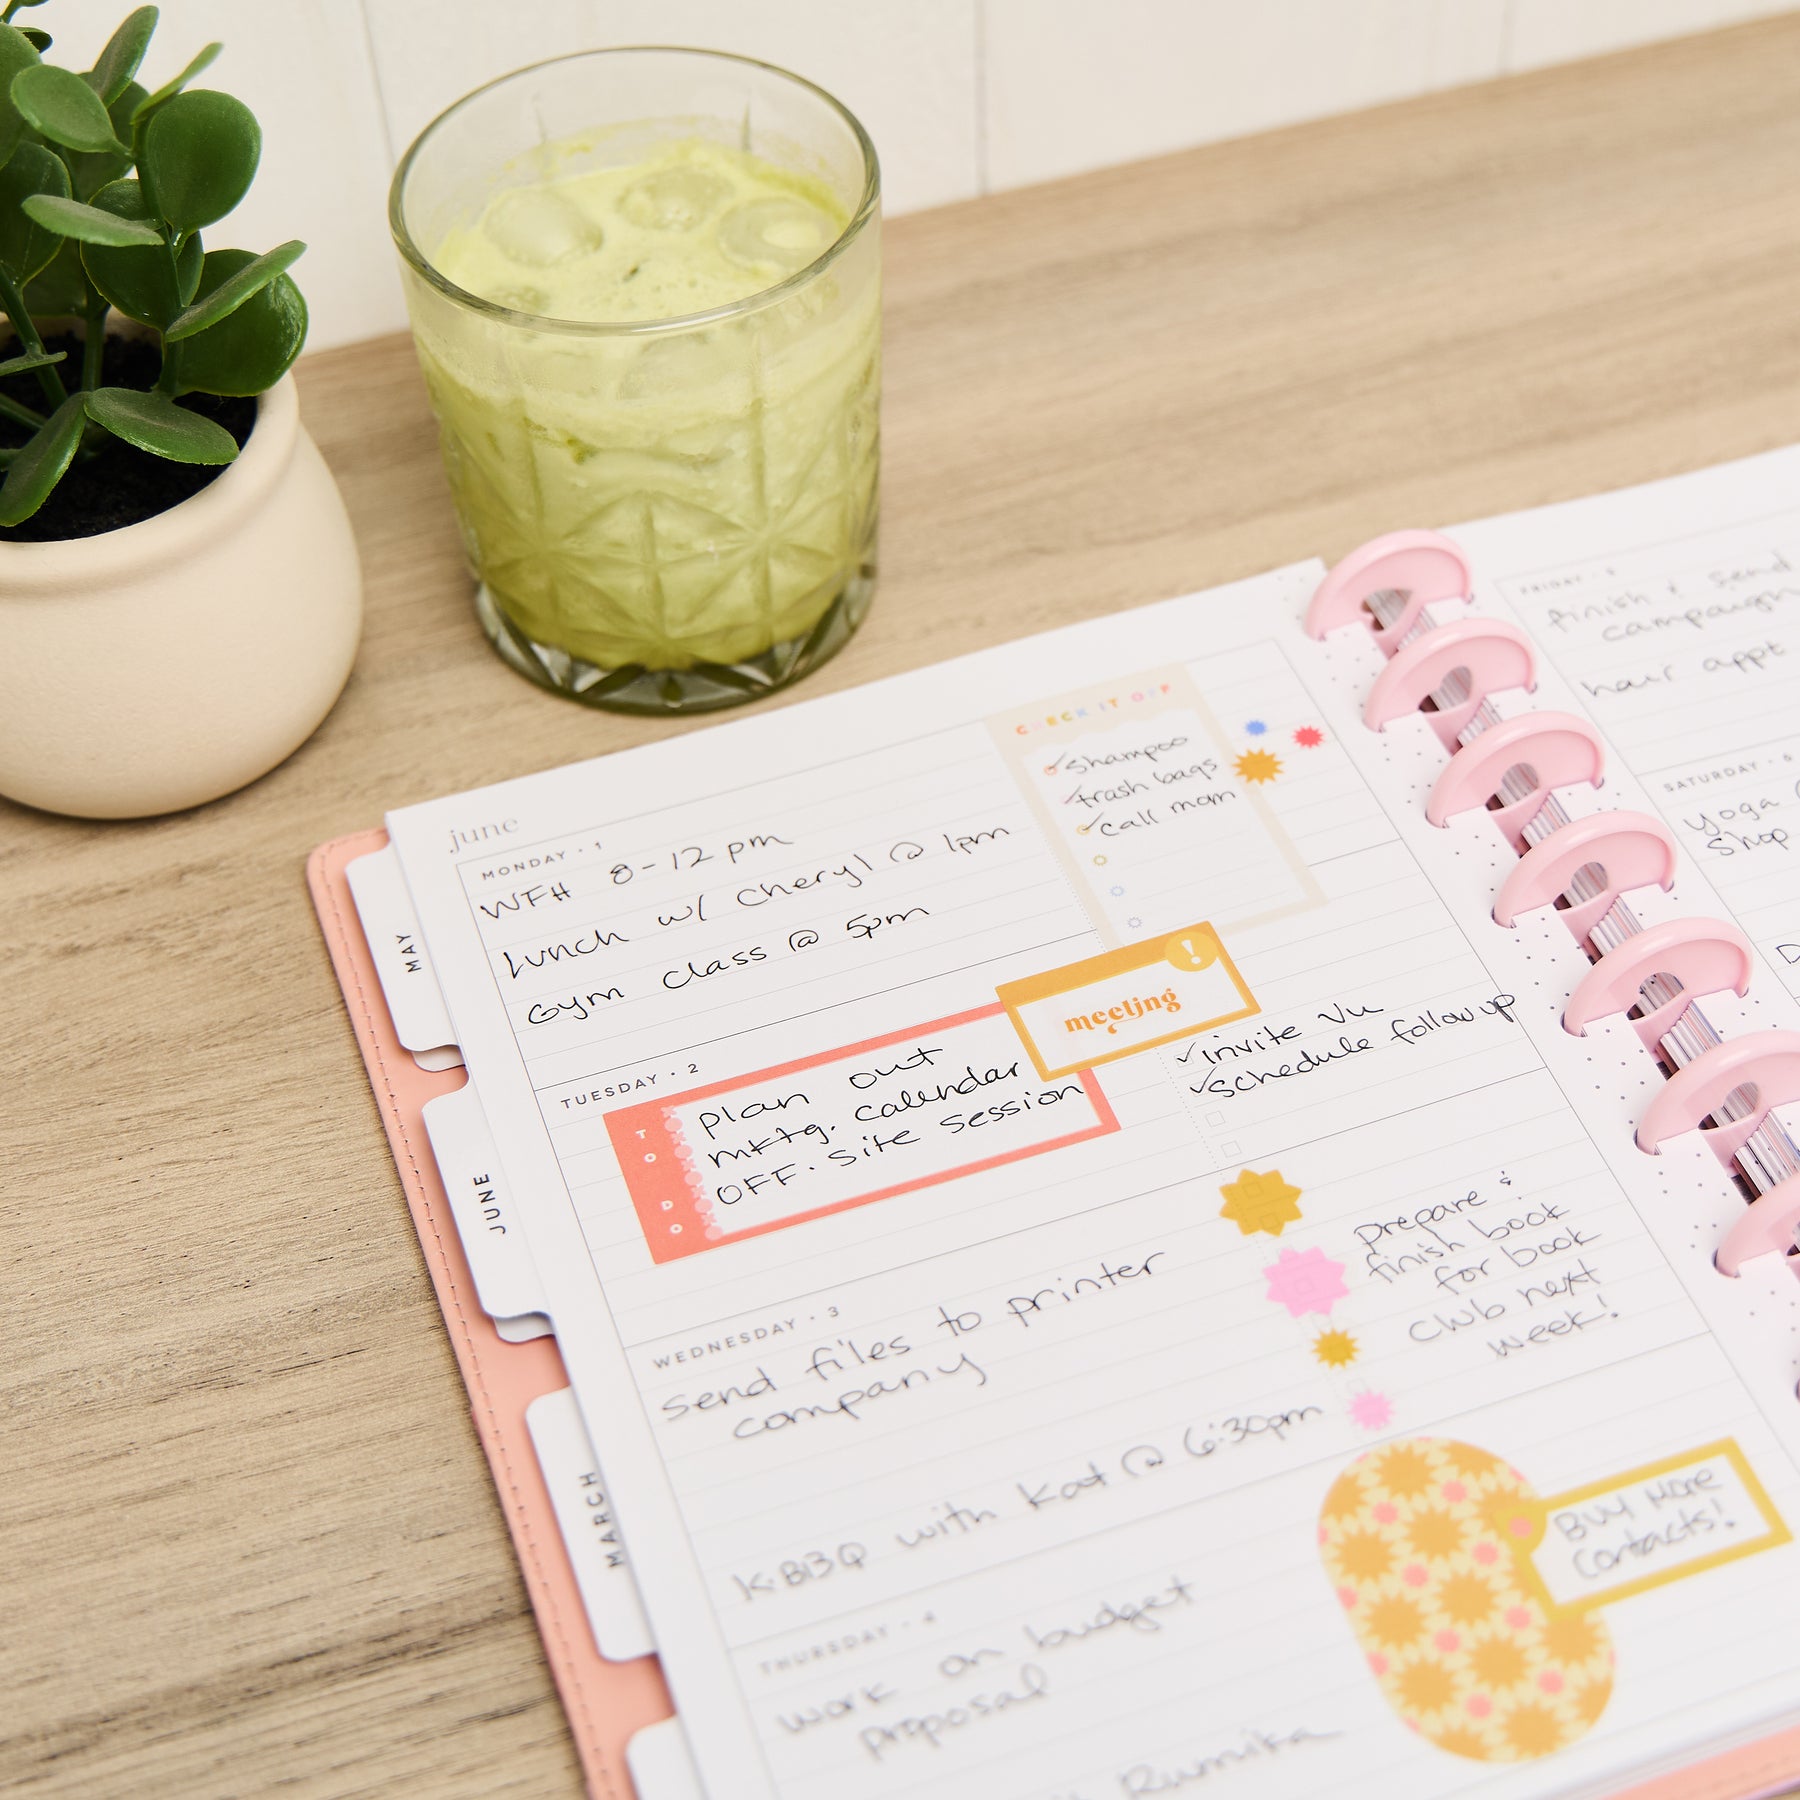 MAY
JUNE
MARCH
june
MONDAY · 1
WFH 8-12 pm
Lunch w/ Cheryl @ 1pm
Gym Class @ 5pm
CHECK IT OFF
shampoo
trash bags
call mom
TUESDAY · 2
TO DO
plan out
mktg. calendar
OFF. Site session
meeting
!
invite Vu
schedule follow up
WEDNESDAY · 3
send files to printer
company
K-BBQ with Kat @ 6:30pm
prepare &
finish book
for book
club next
week!
THURSDAY · 4
work on budget
proposal
Rumika
BUY MORE
Contacts!
FRIDAY · 5
finish & send
campaign
hair appt
SATURDAY · 6
yoga
Shop